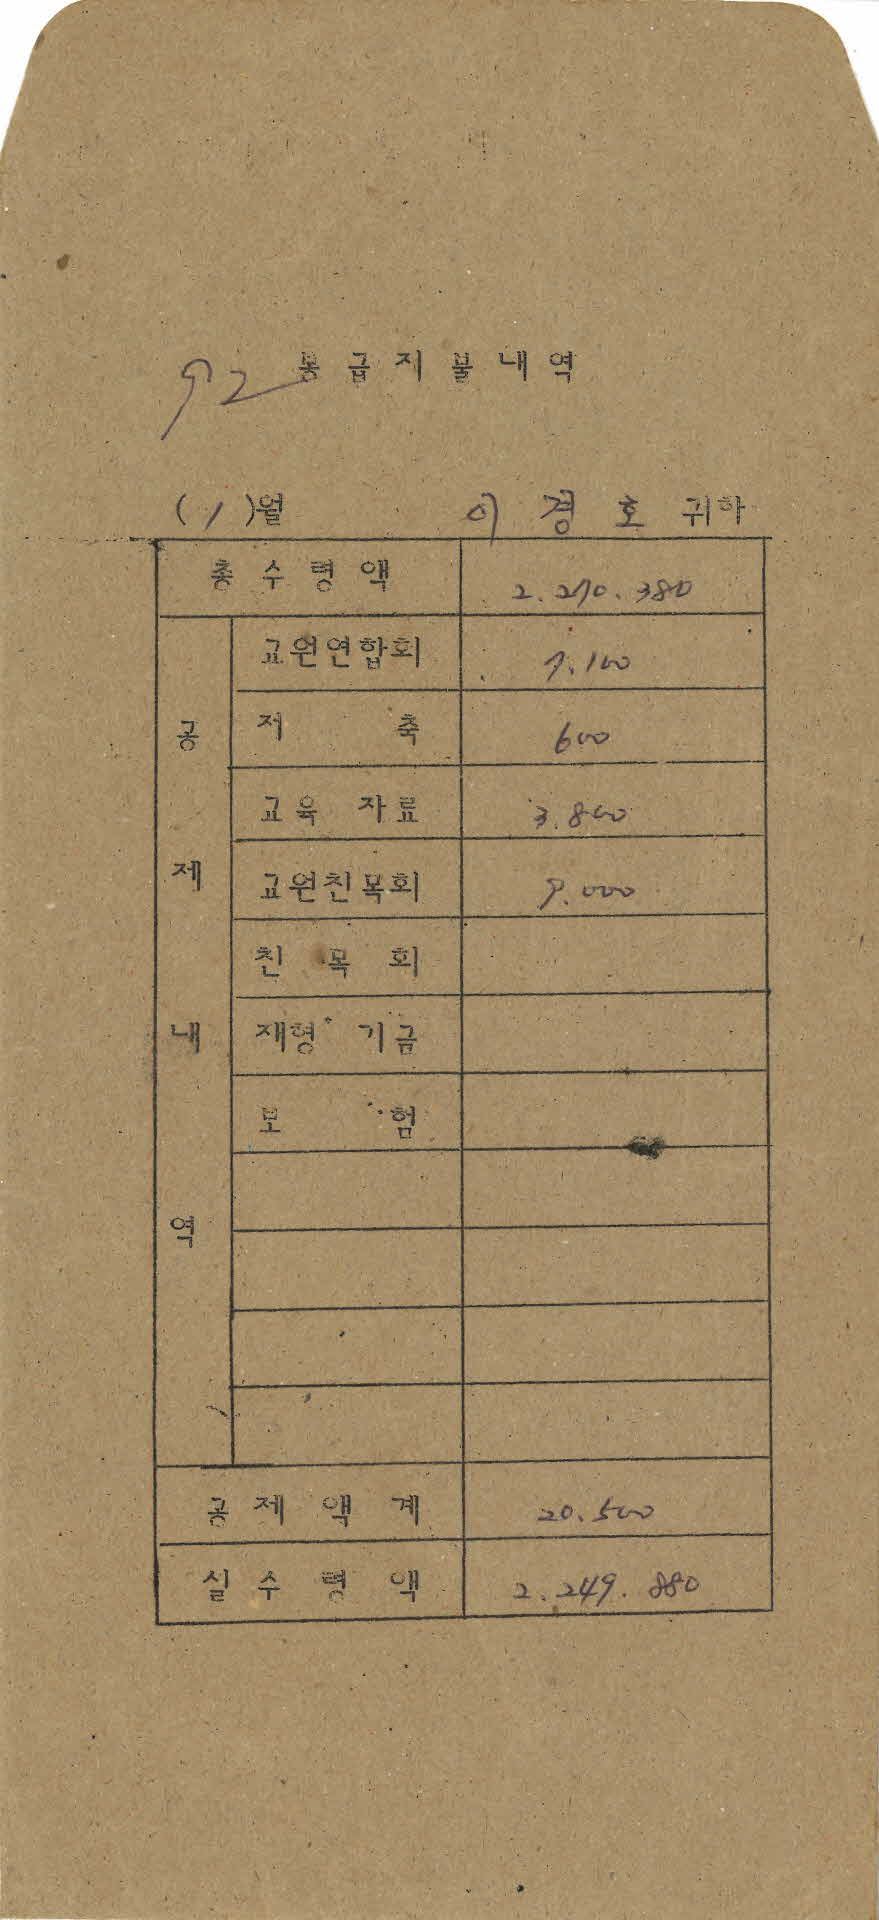 92 봉급지불내역
(1)월 이경호 귀하
총수령액 2.270.380
공제내역
교원연합회 7.100
저축 600
교육 자료 3.800
교원친목회 9.000
친목회
재형 기금
보험
공제액계 20.500
실수령액 2.249.880